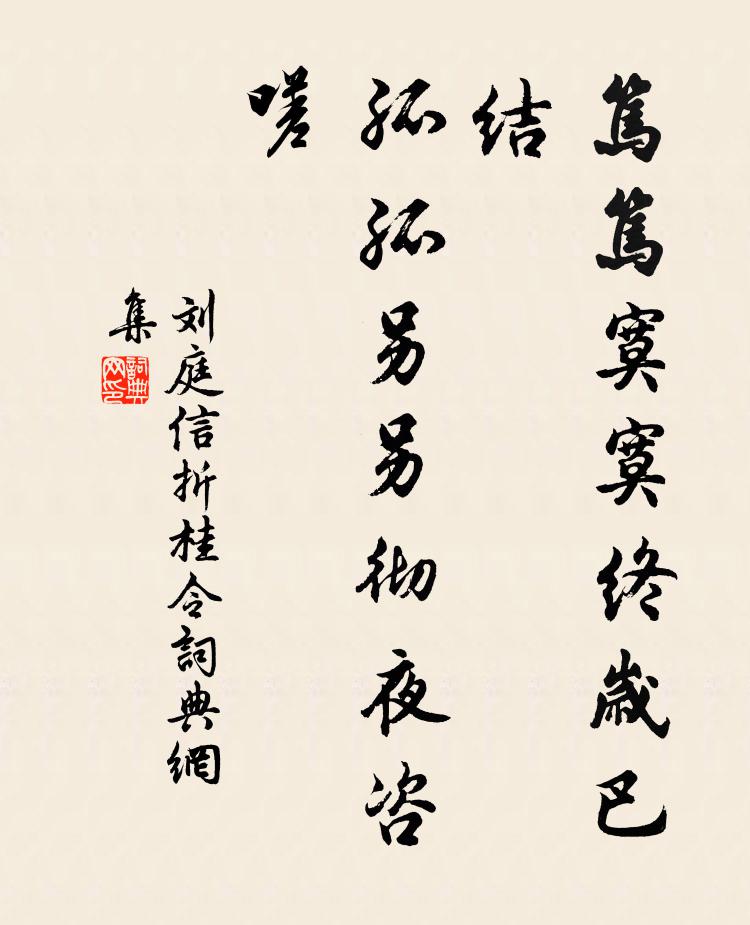 篤篤寞寞终歲巴
结
孤孤另另彻夜咨
嗟
刘庭信折桂令詞典網
集
詞典
网印